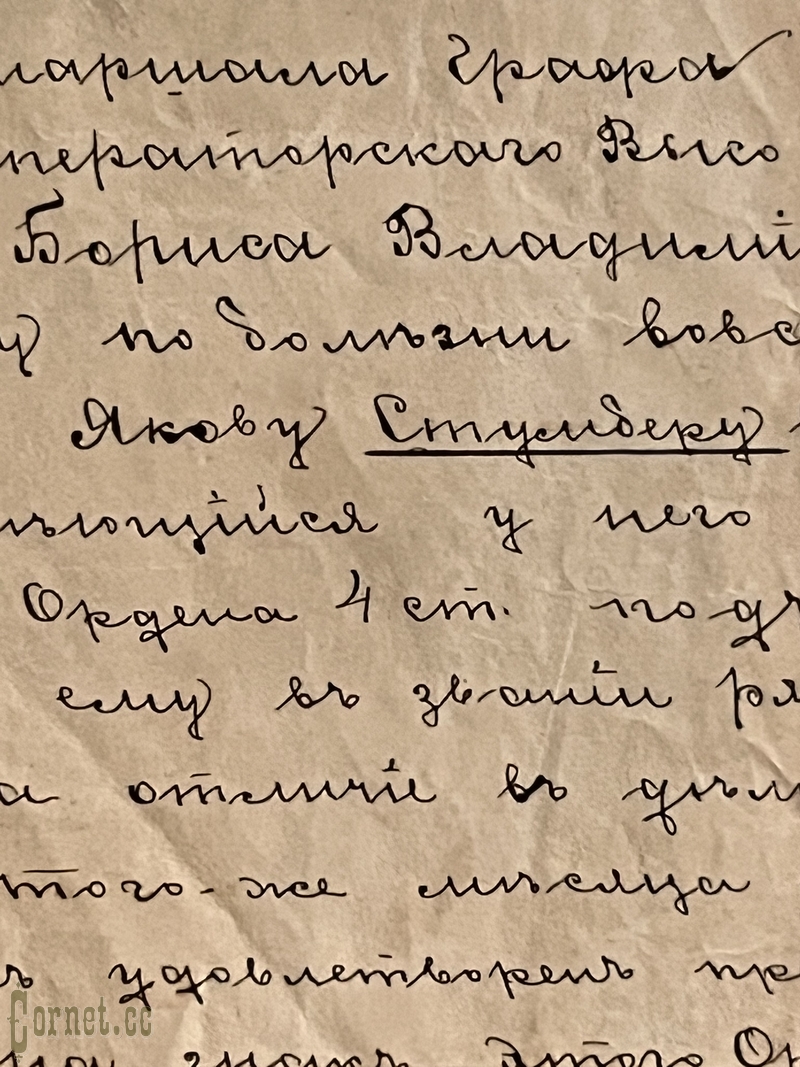 маршала Графа
ператорскаго Высо
Бориса Владимі
у по болѣзни вовс
Якову Стумберу
ѣющійся у него
Ордена 4 ст. подъ
ему въ званіи ря
а отличіе въ дѣл
того-же мѣсяца
ъ удовлетворенъ пр
знакъ этого Ор
Cornet.cc